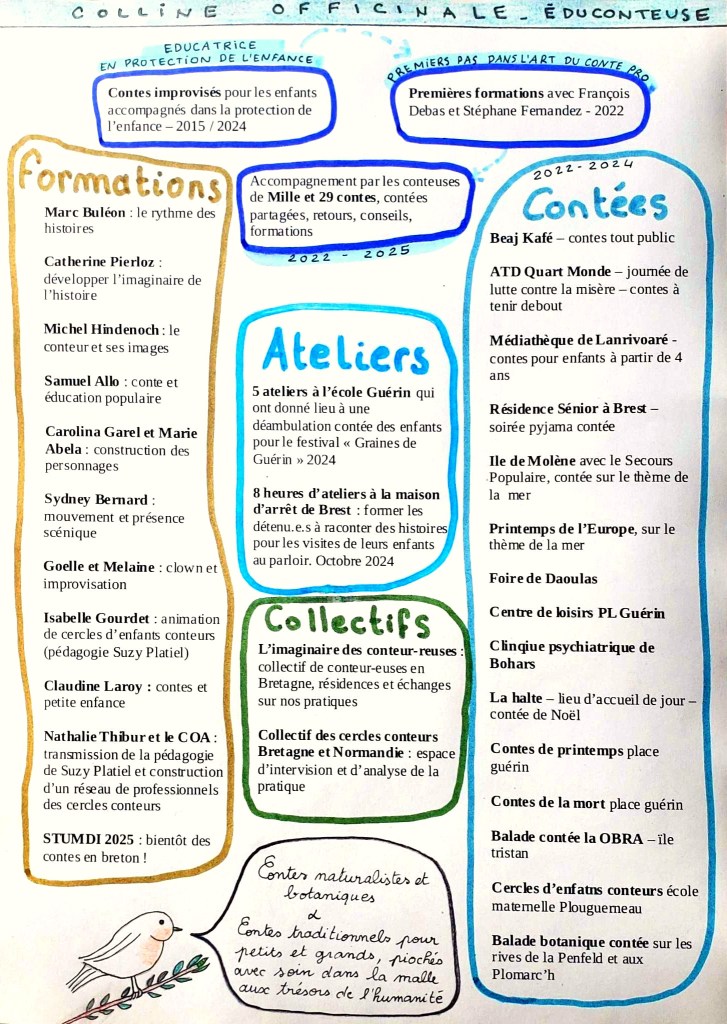 COLLINE OFFICINALE_ ÉDUCONTEUSE
EDUCATRICE
EN PROTECTION DE L'ENFANCE
Contes improvisés pour les enfants
accompagnés dans la protection de
l'enfance – 2015 / 2024
PREMIERS PAS DANS L'ART DU CONTE PRO
Premières formations avec François
Debas et Stéphane Fernandez - 2022
Accompagnement par les conteuses
de Mille et 29 contes, contées
partagées, retours, conseils,
formations
2022 - 2025
Formations
Marc Buléon : le rythme des
histoires
Catherine Pierloz :
développer l'imaginaire de
l'histoire
Michel Hindenoch : le
conteur et ses images
Samuel Allo : conte et
éducation populaire
Carolina Garel et Marie
Abela : construction des
personnages
Sydney Bernard :
mouvement et présence
scénique
Goelle et Melaine : clown et
improvisation
Isabelle Gourdet : animation
de cercles d'enfants conteurs
(pédagogie Suzy Platiel)
Claudine Laroy : contes et
petite enfance
Nathalie Thibur et le COA :
transmission de la pédagogie
de Suzy Platiel et construction
d'un réseau de professionnels
des cercles conteurs
STUMDI 2025 : bientôt des
contes en breton !
Ateliers
5 ateliers à l'école Guérin qui
ont donné lieu à une
déambulation contée des enfants
pour le festival « Graines de
Guérin » 2024
8 heures d'ateliers à la maison
d'arrêt de Brest : former les
détenu.e.s à raconter des histoires
pour les visites de leurs enfants
au parloir. Octobre 2024
Collectifs
L'imaginaire des conteur-reuses :
collectif de conteur-euses en
Bretagne, résidences et échanges
sur nos pratiques
Collectif des cercles conteurs
Bretagne et Normandie : espace
d'intervision et d'analyse de la
pratique
Contes naturalistes et
botaniques
&
Contes traditionnels pour
petits et grands, piochés
avec soin dans la malle
aux trésors de l'humanité
2022-2024
Contées
Beaj Kafé – contes tout public
ATD Quart Monde – journée de
lutte contre la misère – contes à
tenir debout
Médiathèque de Lanrivoaré -
contes pour enfants à partir de 4
ans
Résidence Sénior à Brest –
soirée pyjama contée
Ile de Molène avec le Secours
Populaire, contée sur le thème de
la mer
Printemps de l'Europe, sur le
thème de la mer
Foire de Daoulas
Centre de loisirs PL Guérin
Clinqiue psychiatrique de
Bohars
La halte – lieu d'accueil de jour –
contée de Noël
Contes de printemps place
guérin
Contes de la mort place guérin
Balade contée la OBRA – île
tristan
Cercles d'enfatns conteurs école
maternelle Plouguerneau
Balade botanique contée sur les
rives de la Penfeld et aux
Plomarc'h